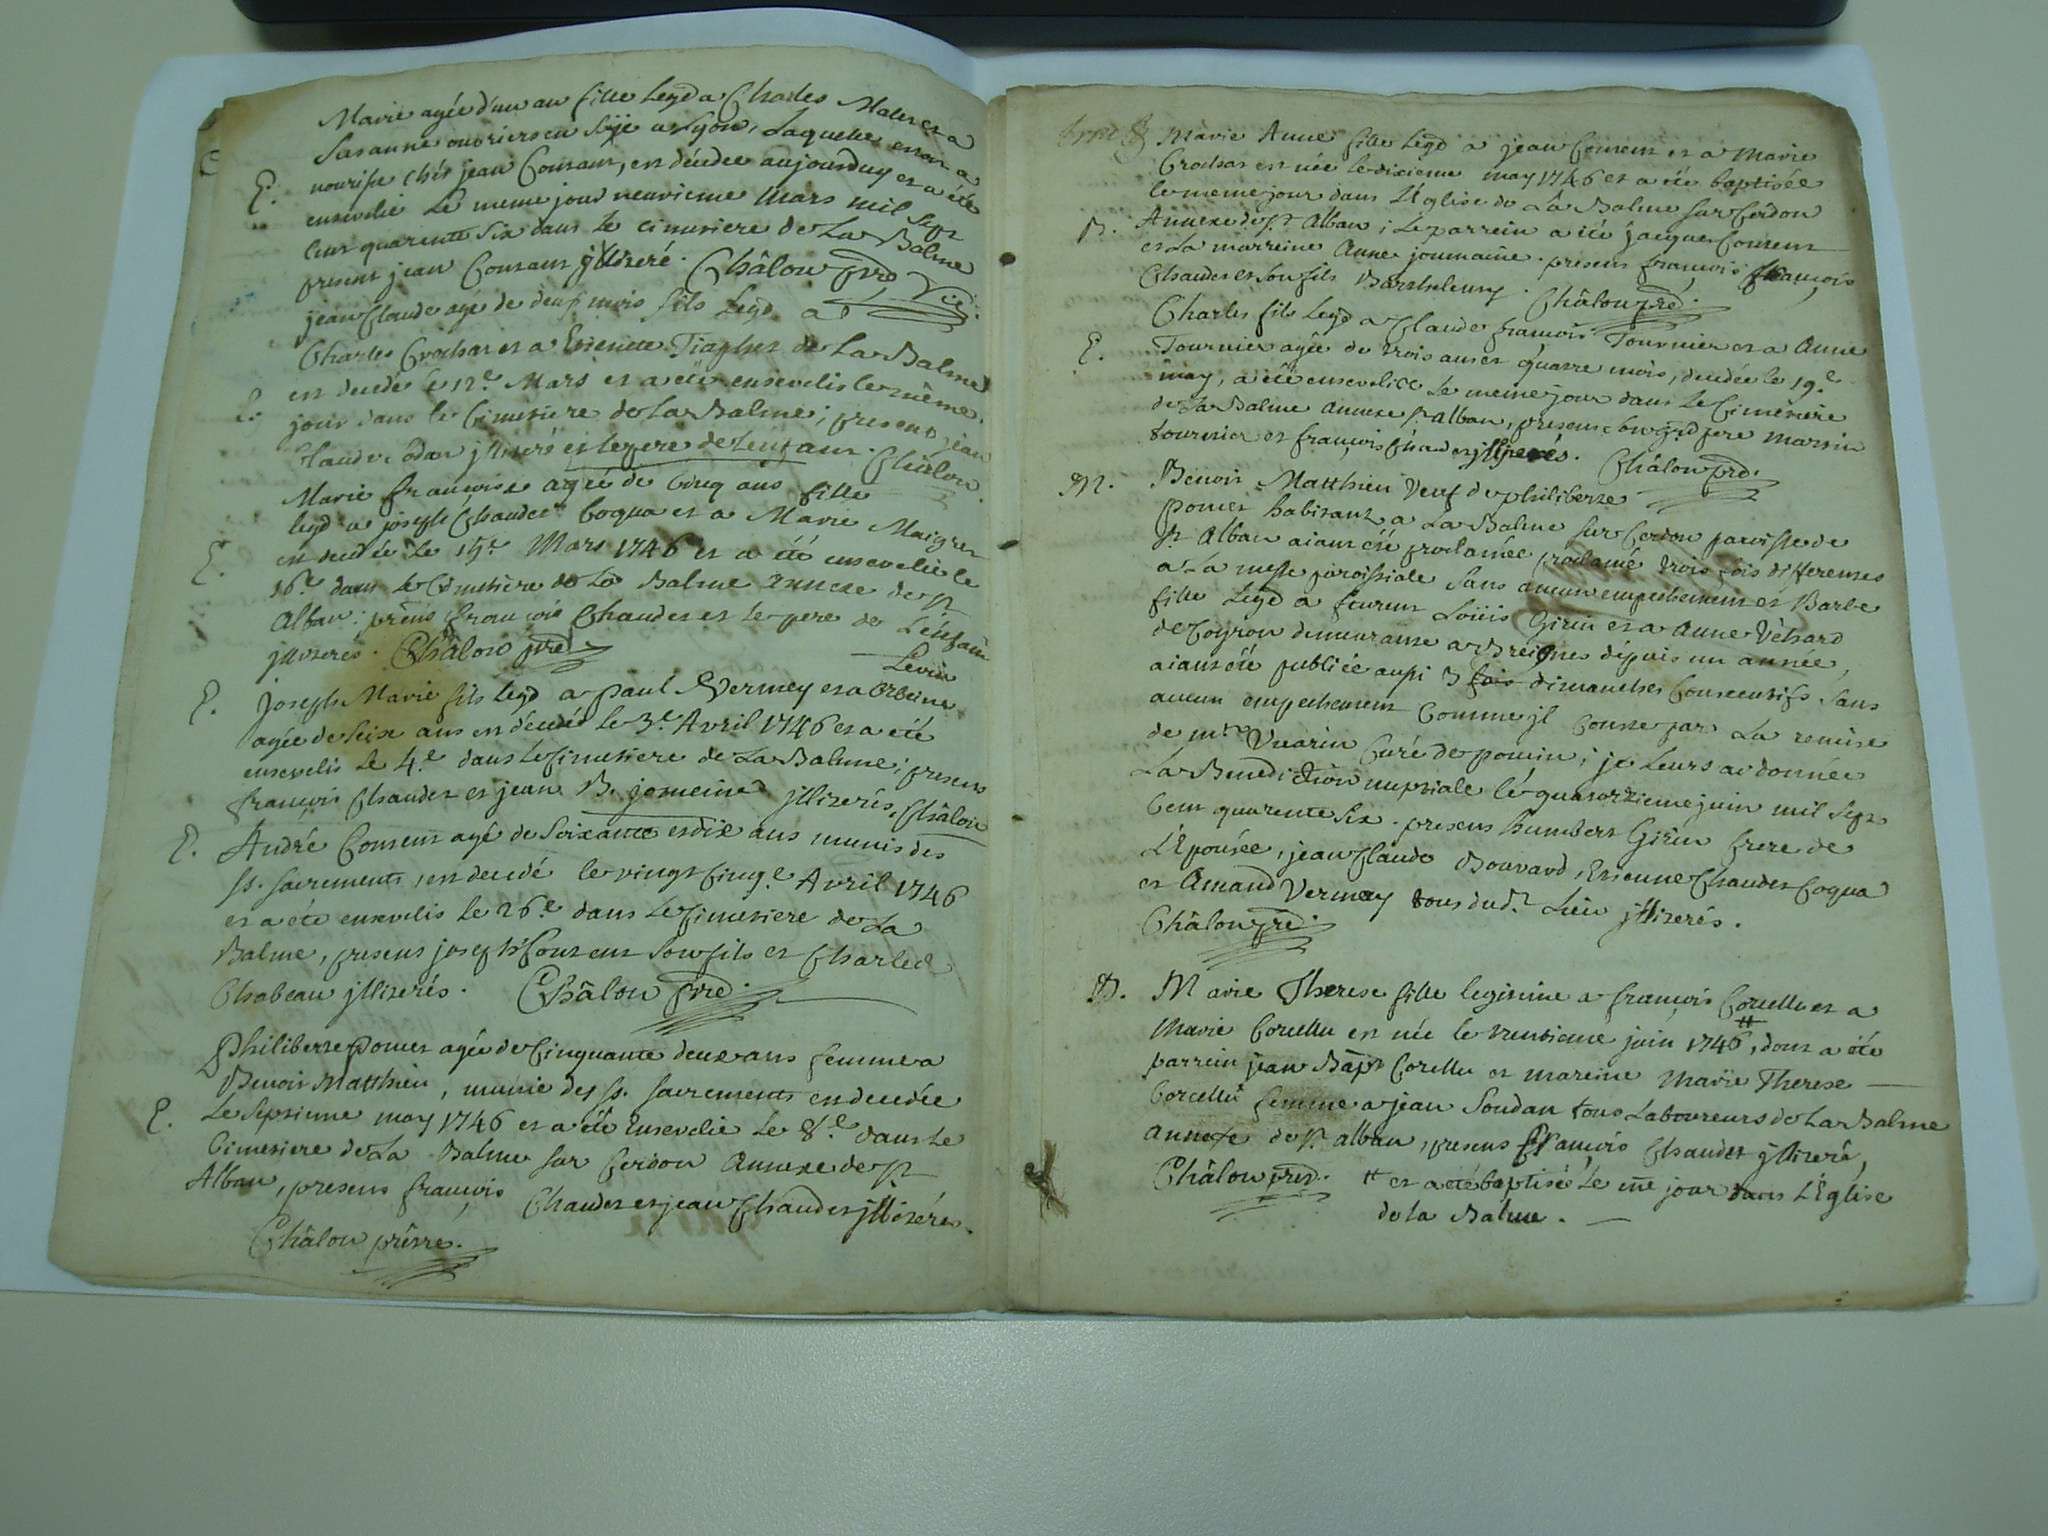 Marie agée d'un an fille legᵉ a Charles Mater et a
Susanne ouvriers en soÿe a Lyon, Laquelle etant a
E. nourise chés jean Consant, est décédée aujourduy et a été
ensevelie Le meme jour neuvieme Mars mil sept
cent quarente six dans le cimetiere de La Balme
present jean Consant jllitteré. Châlon pre Vic.
jean Claude age de deux mois fils Legᵉ a
Charles Crochat et a Etienette de La Balme
E. est decedé le 12ᵉ Mars et a été ensevelis le même
jour dans le Cimetiere de La Balme; present jean
Claude jllitteré et le pere de Lenfant. Châlon.
Marie françoise agée de Cinq ans fille
legᵉ a joseph Chaudet Coqua et a Marie Maigret
E. est decedée Le 15ᵉ Mars 1746 et a été ensevelie le
16ᵉ dans le Cimetière de La Balme annexe de st
Alban; presens françois Chaudet et le pere de Lenfant
jllitterés. Châlon pre
E. Joseph Marie fils legᵉ a paul Vermey et a
agée de seize ans est décédé le 3ᵉ Avril 1746 et a été
ensevelis le 4ᵉ dans le Cimetiere de La Balme; presens
françois Chaudet et jean B. jomeine jllitterés, Châlon
E. André Consent agé de soixante et dix ans munis des
ss. sacrements, est decedé le vingt cinqᵉ Avril 1746
et a été ensevelis le 26ᵉ dans le Cimetiere de La
Balme, presens joseph Consent son fils et Charles
Chabeau jllitterés. Châlon pre.
Philiberte poncet agée de Cinquante deux ans femme a
Benoit Matthieu, munie des ss. sacrements est decedée
E. Le septieme may 1746 et a été ensevelie Le 8ᵉ dans le
Cimetiere de La Balme sur Cerdon annexe de st
Alban, presens françois Chaudet et jean Chaudet jllitterés.
Châlon prêtre.
Marie Anne fille Legᵉ a jean Consent et a Marie
Crochat est née le dixieme may 1746 et a été baptisée
le meme jour dans L'Eglise de La Balme sur Cerdon
B. Annexe de st Alban; Le parrein a été jacques Consent
et La marreine Anne joumaine. presens françois françois
Chaudet et son fils Barthelemy. Châlon pre.
Charles fils Legᵉ a Claude françois Tournier et a Anne
E. Tournier agée de trois ans et quatre mois, decedée le 19ᵉ
may, a été ensevelie Le meme jour dans Le Cimetiere
de La Balme annexe st Alban, presens pere Martin
tournier et françois Chaudet jllitterés. Châlon pre.
M. Benoit Matthieu Veuf de philiberte
poncet habitant a La Balme sur Cerdon paroisse de
st Alban aiant été proclamée proclamé trois fois differentes
a La messe paroissiale sans aucun empechement et Barbe
fille Legᵉ a Loüis Girin et a Anne
de Coyron demeurante a depuis un année,
aiant été publiée aussi 3 fois dimanches consecutifs sans
aucun empechement Comme jl Conste par La remise
de mʳ Vuarin Curé de poncin; je leurs ai donnée
La Benediction nuptiale lé quatorzieme juin mil sept
Cent quarente six. presens humbert Girin frere de
L'Epousée, jean Claude Bouvard, Etienne Chaudet Coqua
et Amand Vermey tous dud. Lieu jllitterés.
Châlon pre.
B. Marie Therese fille legitime a françois Corcellu et a
Marie Corcellu est née le trentieme juin 1746, dont a été
parrein jean Bapt Corcellu et mareine Marie Therese
Corcellu femme a jean Soudan tous Laboureurs de La Balme
annexe de st alban, presens françois Chaudet jllitteré,
Châlon pre. # et a été baptisé Le me jour dans L'Eglise
de la Balme.